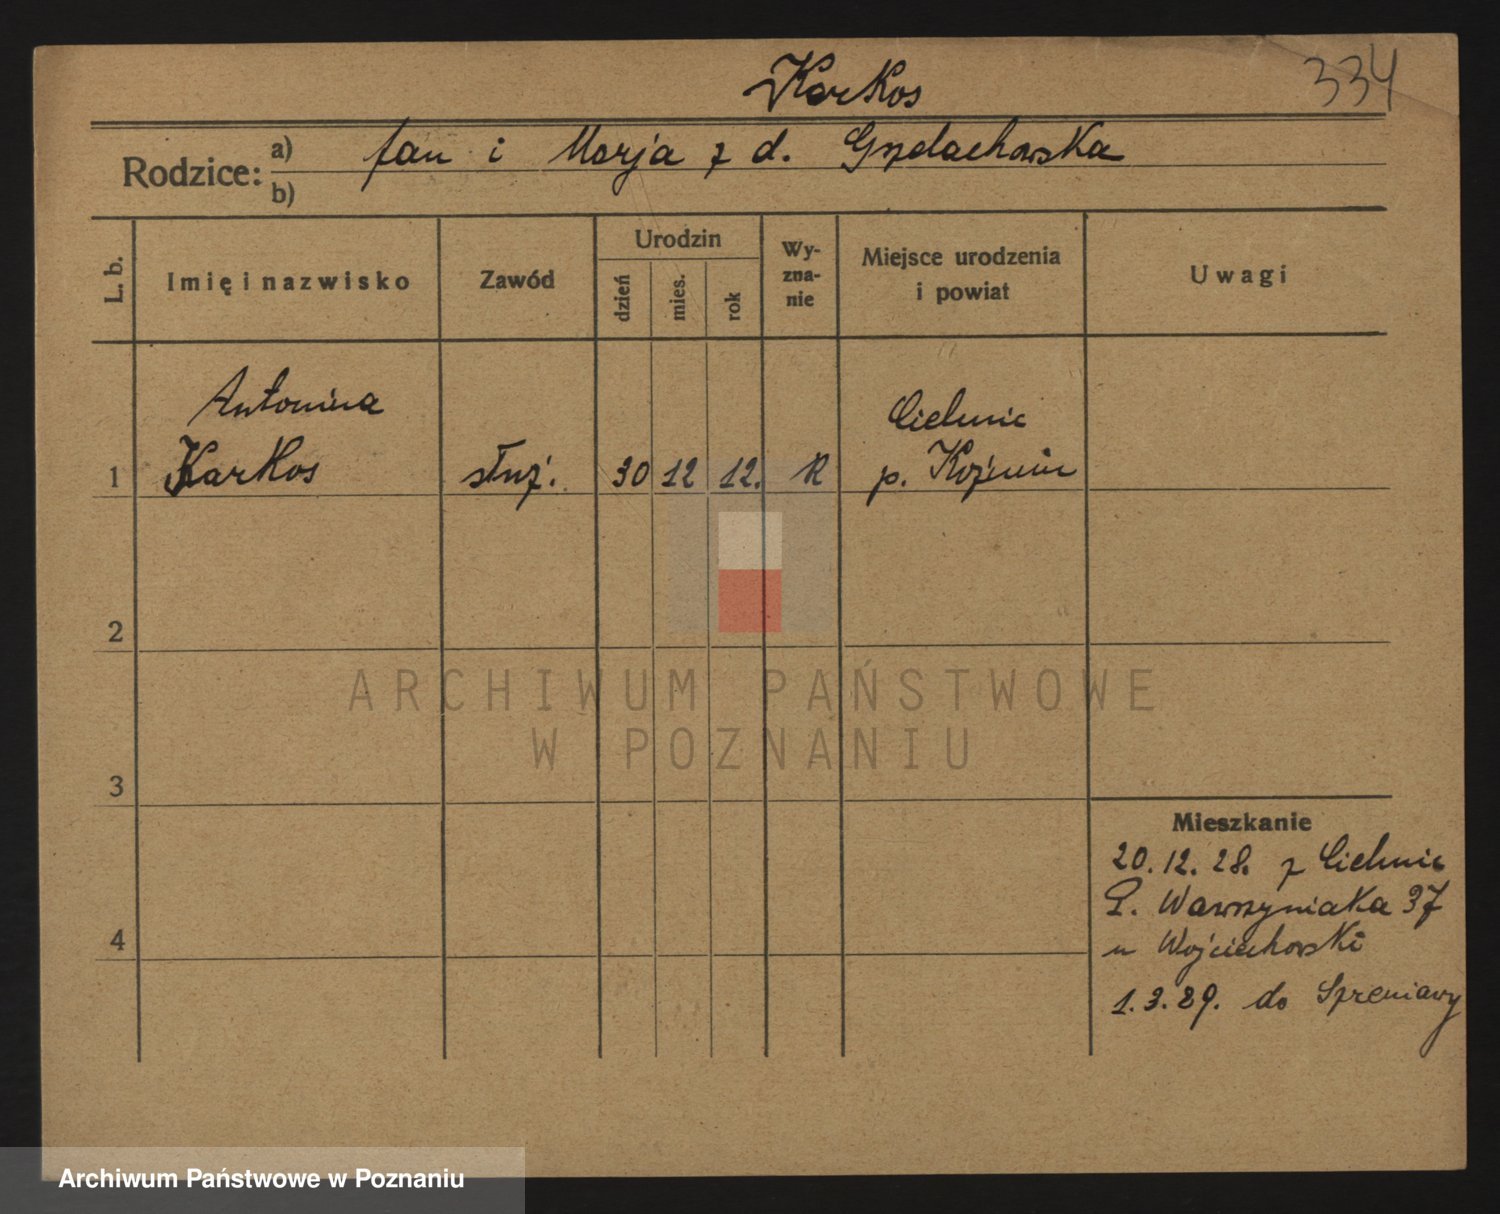 Karkos
334
Rodzice: a) Jan i Marja z d. Gzdachowska
b)
L. b.
Imię i nazwisko
Zawód
Urodzin
dzień
mies.
rok
Wy-
zna-
nie
Miejsce urodzenia
i powiat
Uwagi
Antonina
1 Karkos służ. 30 12 12. R
Cielmic
p. Koźmin
2
3
4
Mieszkanie
20.12.28. z Cielmic
P. Wawrzyniaka 37
u Wojciechowski
1.3.29. do Spreniawy
ARCHIWUM PAŃSTWOWE
W POZNANIU
Archiwum Państwowe w Poznaniu